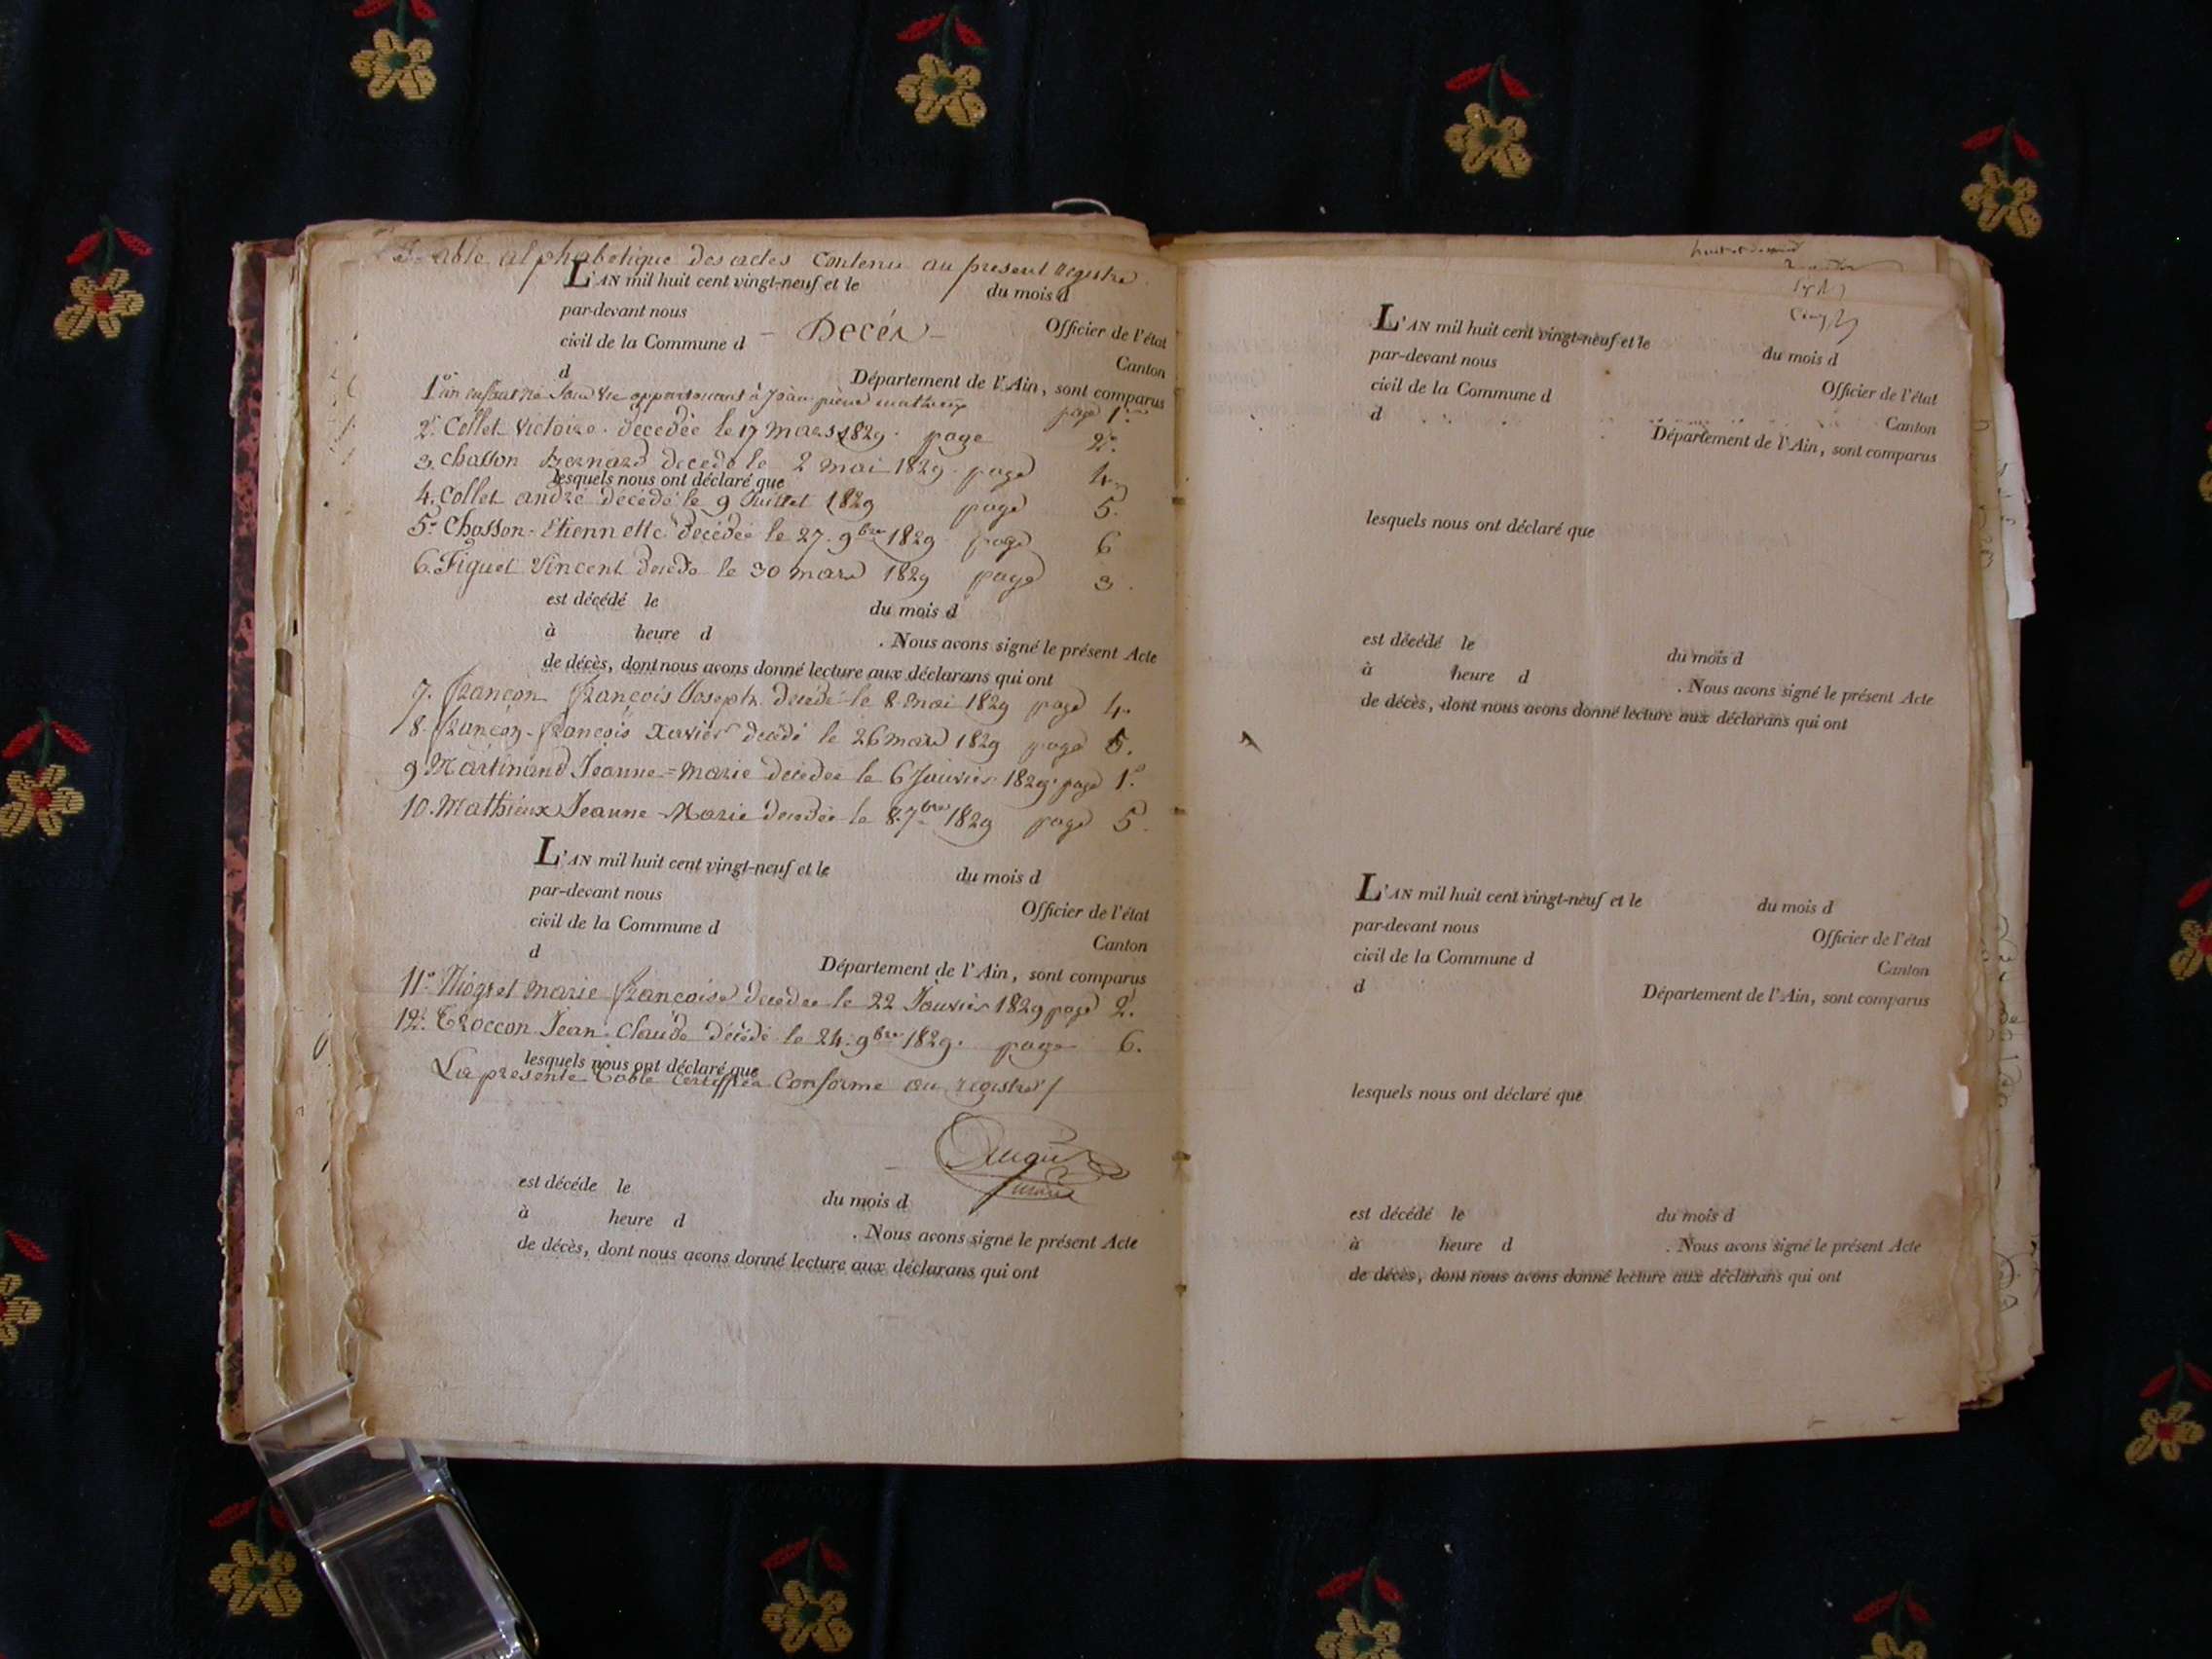 Table alphabetique des actes Contenu au present registre
L'AN mil huit cent vingt-neuf et le du mois d
par-devant nous
civil de la Commune d - Décés - Officier de l'état
d Canton
Département de l'Ain, sont comparus
1° un enfant né sans vie appartenant à page 1
2° Collet Victoire decedée le 17 mars 1829 page 2.
3. chasson Bernard decede le 2 mai 1829 page 4
lesquels nous ont déclaré que
4. Collet andré decedé le 9 Juillet 1829 page 5.
5° Chasson Etiennette decedée le 27. 9bre 1829 page 6
6. Figuet Vincent decede le 30 mars 1829 page 3.
est décédé le du mois d
à heure d . Nous avons signé le présent Acte
de décès, dont nous avons donné lecture aux déclarans qui ont
7. françon françois Joseph decedé le 8 mai 1829 page 4.
8. françon françois Xavier decédé le 26 1829 page 5.
9 Martinand Jeanne=marie decedée le 6 Janvier 1829 page 1°
10. Mathieux Jeanne-Marie decedée le 8. 7bre 1829 page 5.
L'AN mil huit cent vingt-neuf et le du mois d
par-devant nous
civil de la Commune d Officier de l'état
d Canton
Département de l'Ain, sont comparus
11° Niogret marie françoise decedée le 22 Janvier 1829 page 2.
12° Troccon Jean-Claude décédé le 24. 9bre 1829. page 6.
lesquels nous ont déclaré que
La presente Table Certiffiée Conforme au registre /
est décéde le du mois d
à heure d . Nous avons signé le présent Acte
de décès, dont nous avons donné lecture aux déclarans qui ont
L'AN mil huit cent vingt-neuf et le du mois d
par-devant nous
civil de la Commune d Officier de l'état
d Canton
Département de l'Ain, sont comparus
lesquels nous ont déclaré que
est décédé le du mois d
à heure d . Nous avons signé le présent Acte
de décès, dont nous avons donné lecture aux déclarans qui ont
L'AN mil huit cent vingt-neuf et le du mois d
par-devant nous
civil de la Commune d Officier de l'état
d Canton
Département de l'Ain, sont comparus
lesquels nous ont déclaré que
est décédé le du mois d
à heure d . Nous avons signé le présent Acte
de décès, dont nous avons donné lecture aux déclarans qui ont